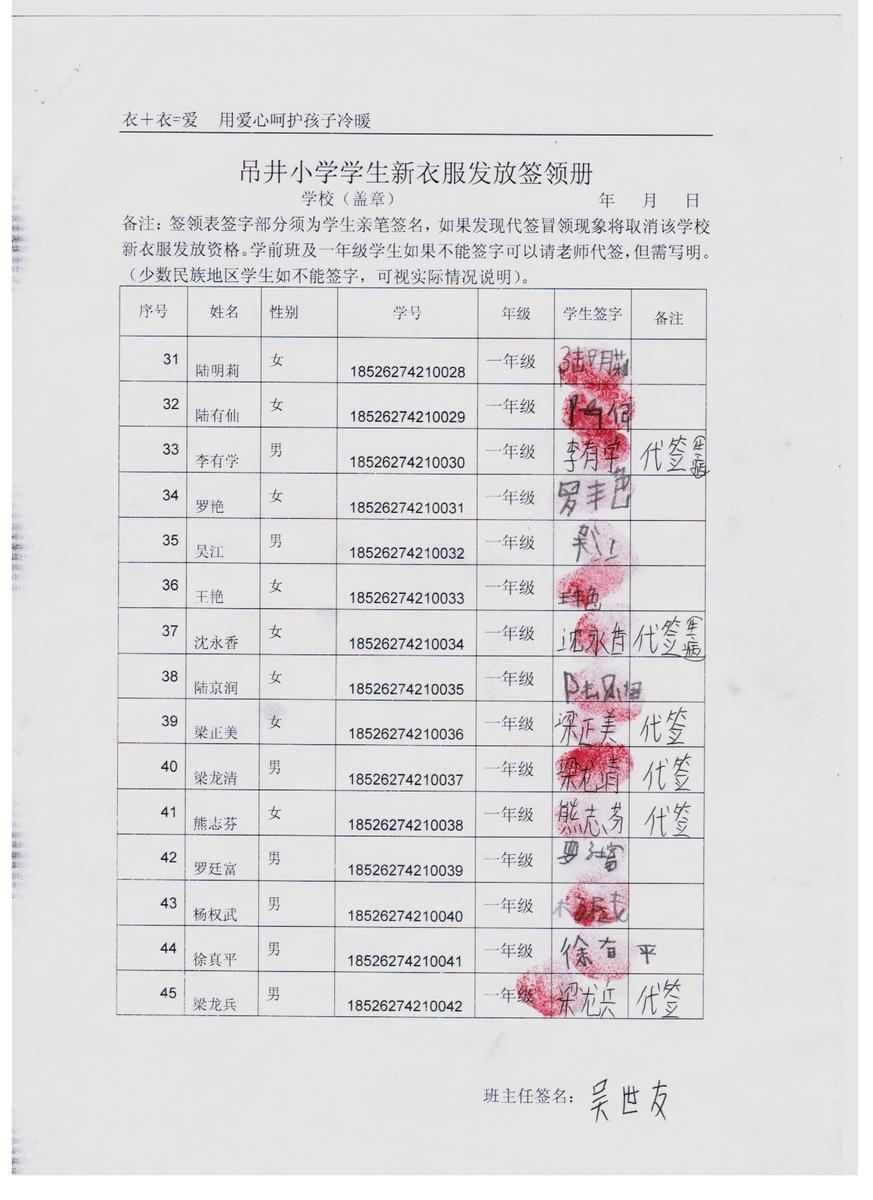 衣+衣=爱 用爱心呵护孩子冷暖
吊井小学学生新衣服发放签领册
学校（盖章） 年 月 日
备注：签领表签字部分须为学生亲笔签名，如果发现代签冒领现象将取消该学校
新衣服发放资格。学前班及一年级学生如果不能签字可以请老师代签，但需写明。
（少数民族地区学生如不能签字，可视实际情况说明）。
序号 姓名 性别 学号 年级 学生签字 备注
31 陆明莉 女 18526274210028 一年级 陆明莉
32 陆有仙 女 18526274210029 一年级
33 李有学 男 18526274210030 一年级 李有学 代签（生病）
34 罗艳 女 18526274210031 一年级 罗艳
35 吴江 男 18526274210032 一年级 吴江
36 王艳 女 18526274210033 一年级 王艳
37 沈永香 女 18526274210034 一年级 沈永香 代签（生病）
38 陆京润 女 18526274210035 一年级
39 梁正美 女 18526274210036 一年级 梁正美 代签
40 梁龙清 男 18526274210037 一年级 梁龙清 代签
41 熊志芬 女 18526274210038 一年级 熊志芬 代签
42 罗廷富 男 18526274210039 一年级 罗廷富
43 杨权武 男 18526274210040 一年级
44 徐真平 男 18526274210041 一年级 徐真平
45 梁龙兵 男 18526274210042 一年级 梁龙兵 代签
班主任签名：吴世友